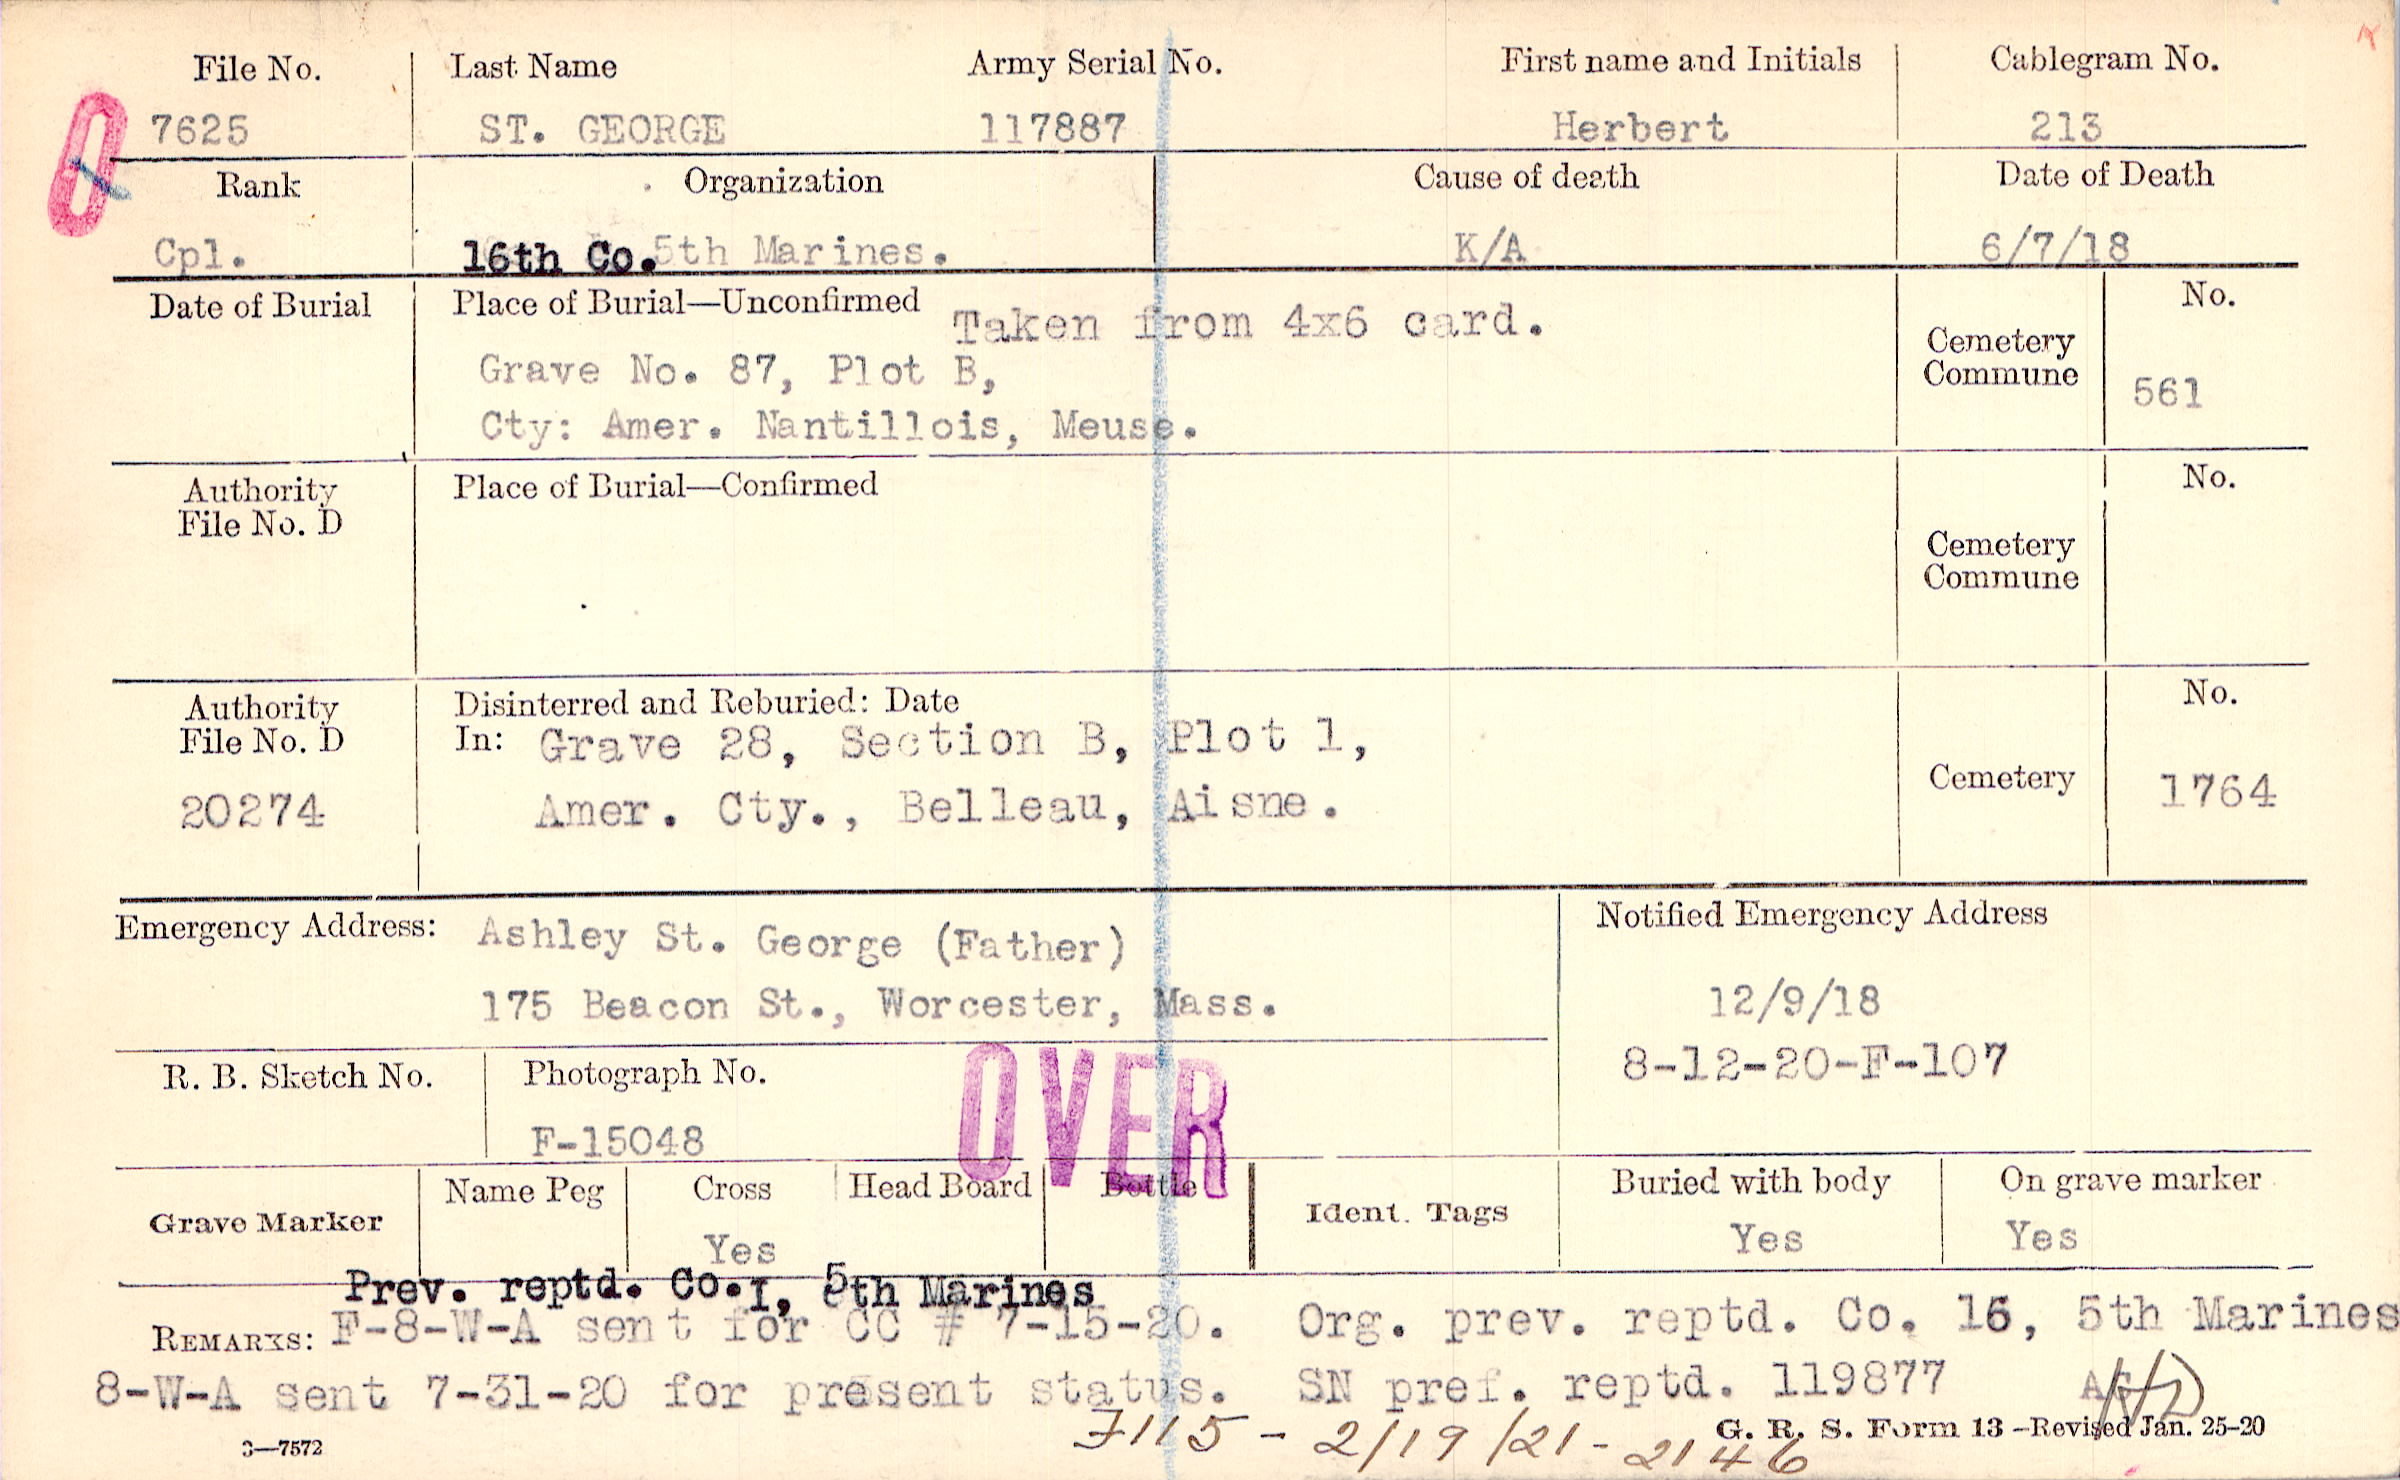 File No. Last Name Army Serial No. First name and Initials Cablegram No.
7625 ST. GEORGE 117887 Herbert 213
Rank Organization Cause of death Date of Death
Cpl. 16th Co. 5th Marines. K/A 6/7/18
Date of Burial Place of Burial—Unconfirmed Taken from 4x6 card. No.
Grave No. 87, Plot B,
Cty: Amer. Nantillois, Meuse.
Cemetery
Commune
561
Authority
File No. D
Place of Burial—Confirmed
No.
Cemetery
Commune
Authority
File No. D
20274
Disinterred and Reburied: Date
In: Grave 28, Section B, Plot 1,
Amer. Cty., Belleau, Aisne.
No.
Cemetery 1764
Emergency Address: Ashley St. George (Father)
175 Beacon St., Worcester, Mass.
Notified Emergency Address
12/9/18
8-12-20-F-107
R. B. Sketch No. Photograph No.
F-15048
OVER
Grave Marker Name Peg Cross Head Board Bottle Ident. Tags Buried with body On grave marker
Yes Yes Yes
Prev. reptd. Co. I, 5th Marines
REMARKS: F-8-W-A sent for CC # 7-15-20. Org. prev. reptd. Co. 16, 5th Marines
8-W-A sent 7-31-20 for present status. SN pref. reptd. 119877
F115 - 2/19/21 - 2146
3—7572 G. R. S. Form 13—Revised Jan. 25-20